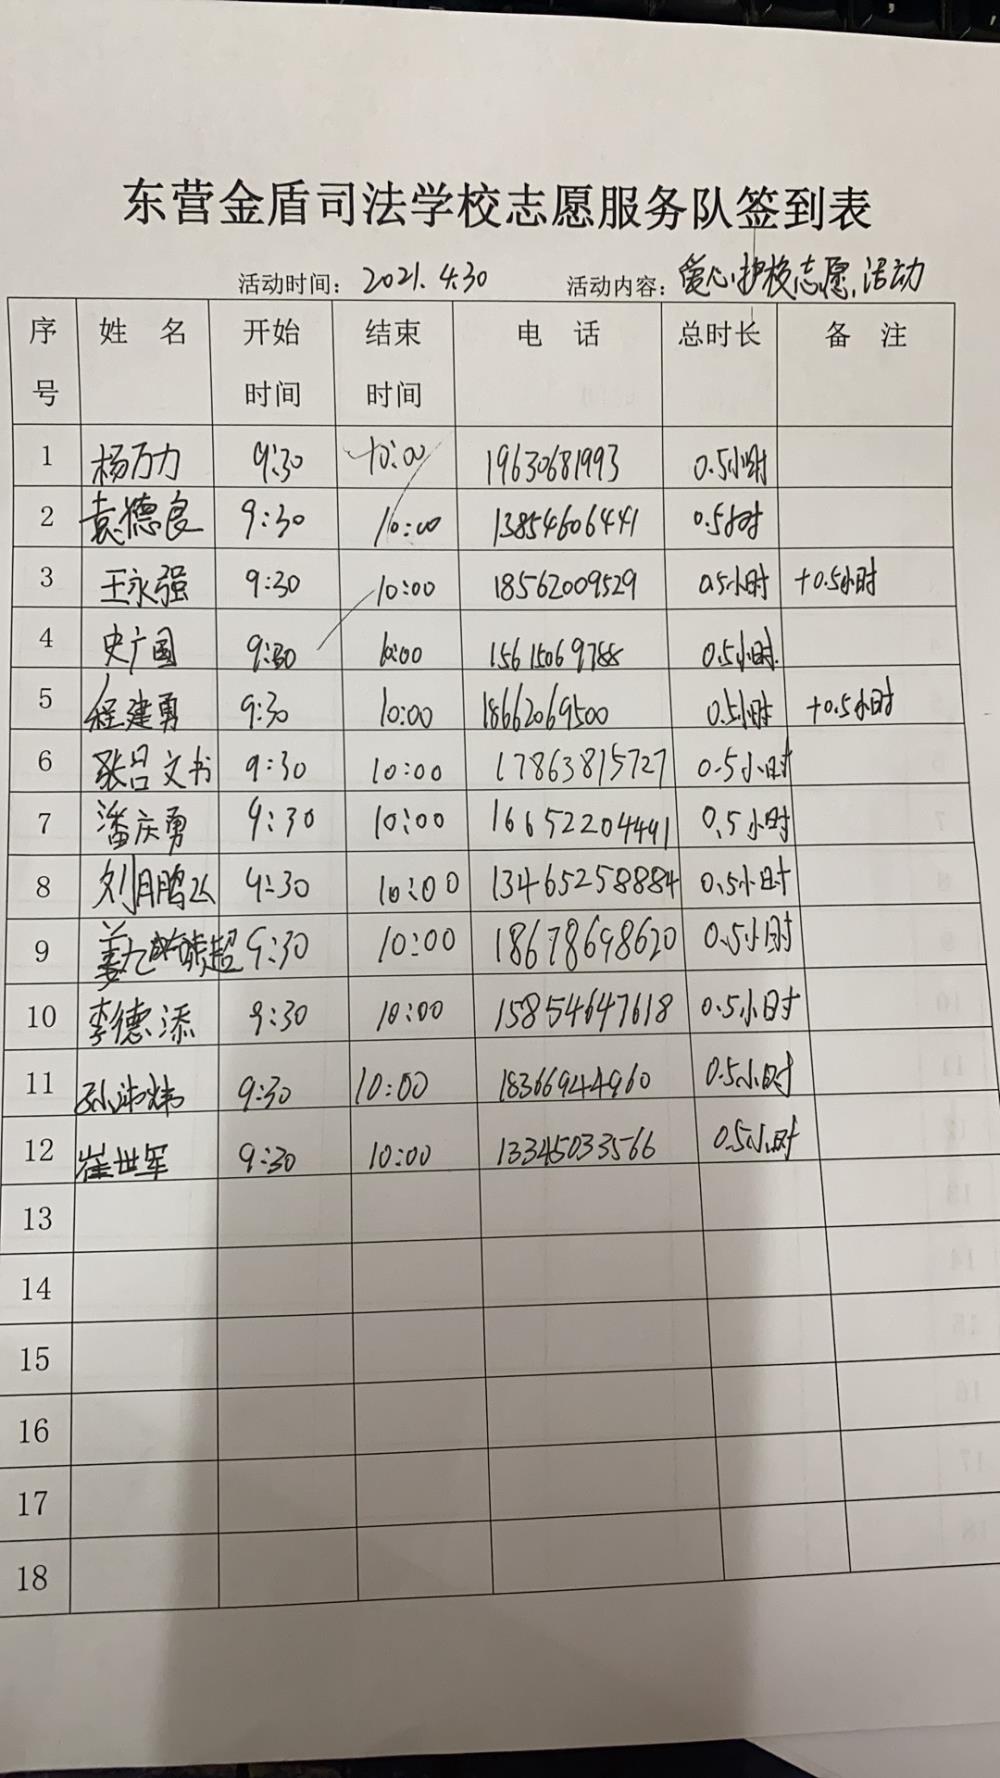 东营金盾司法学校志愿服务队签到表
活动时间：2021.4.30 活动内容：爱心护校志愿活动
序号 姓 名 开始时间 结束时间 电 话 总时长 备 注
1 杨万力 9:30 10:00 19630681993 0.5小时
2 袁德良 9:30 10:00 13854606441 0.5小时
3 王永强 9:30 10:00 18562009529 0.5小时 +0.5小时
4 史广国 9:30 10:00 15615069788 0.5小时
5 程建勇 9:30 10:00 18662069500 0.5小时 +0.5小时
6 张吕文书 9:30 10:00 17863815727 0.5小时
7 潘庆勇 9:30 10:00 16652204491 0.5小时
8 刘月鹏飞 9:30 10:00 13465258884 0.5小时
9 超 9:30 10:00 18678698620 0.5小时
10 李德添 9:30 10:00 15854647618 0.5小时
11 9:30 10:00 18366944960 0.5小时
12 崔世军 9:30 10:00 13345033566 0.5小时
13
14
15
16
17
18